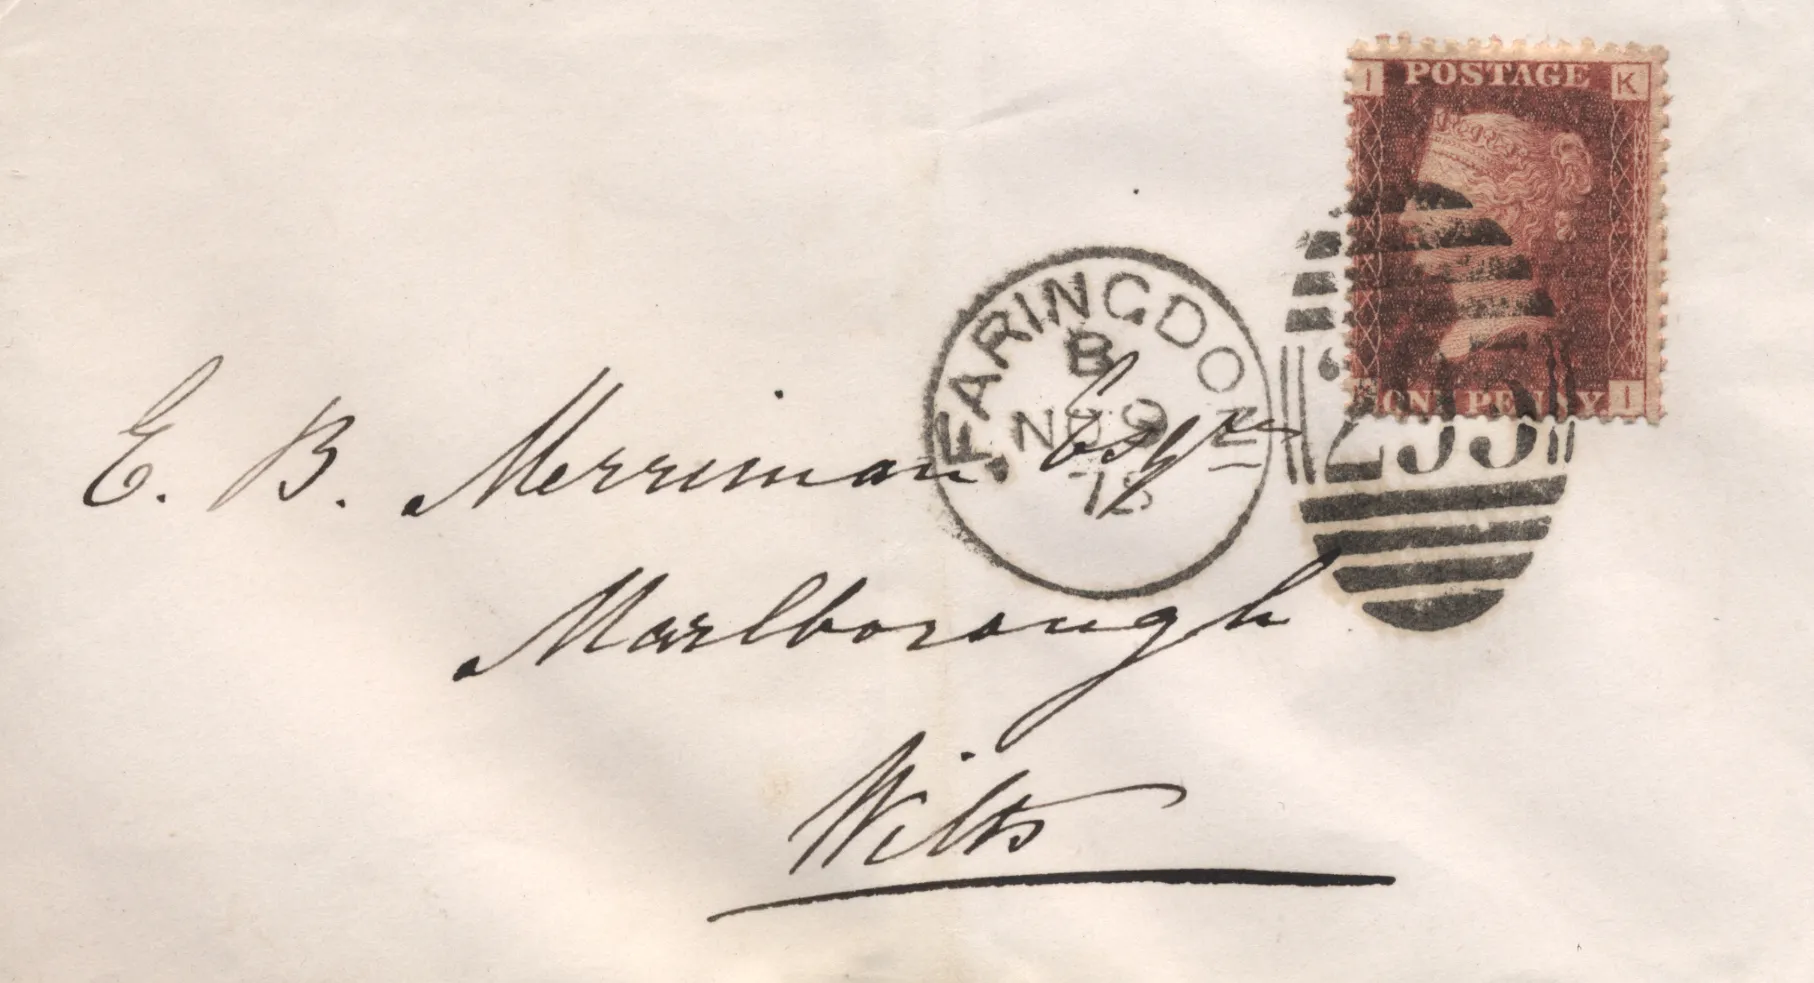 I POSTAGE K
K ONE PENNY I
FARINGDON
B
NO 9
78
E. B. Merriman Esqre
Marlborough
Wilts